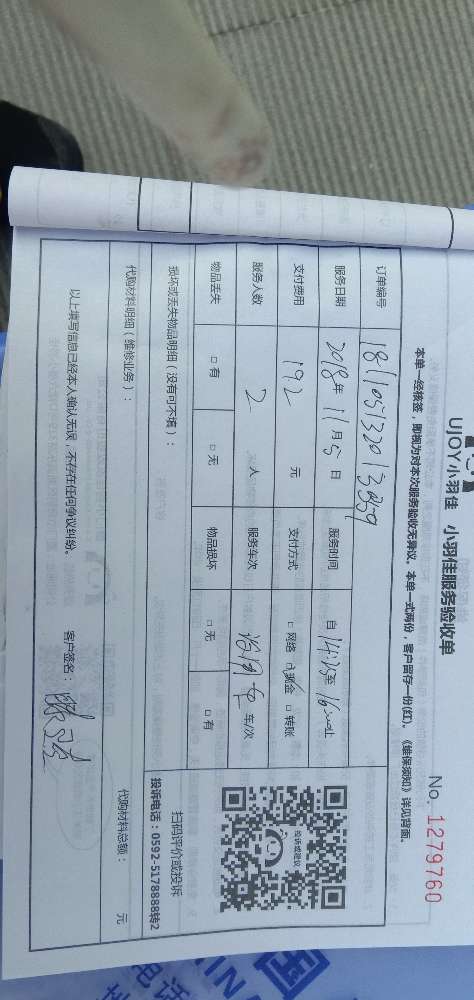 UJOY小羽佳 小羽佳服务验收单
No. 1279760
本单一经核签，即视为对本次服务验收无异议。本单一式两份，客户留存一份(红)。《维保须知》详见背面。
订单编号
服务日期 2018年 11月 5 日 服务时间 自 至 止
支付费用 192 元 支付方式 □ 网络 现金 □ 转账
服务人数 2 人 服务车次 车/次
物品丢失 □ 有 □ 无 物品损坏 □ 无 □ 有
投诉或建议
扫码评价或投诉
投诉电话：0592-5178888转2
损坏或丢失物品明细（没有可不填）：
代购材料明细（维修业务）： 代购材料总额： 元
以上填写信息已经本人确认无误，不存在任何争议纠纷。 客户签名：
国
INA
电话